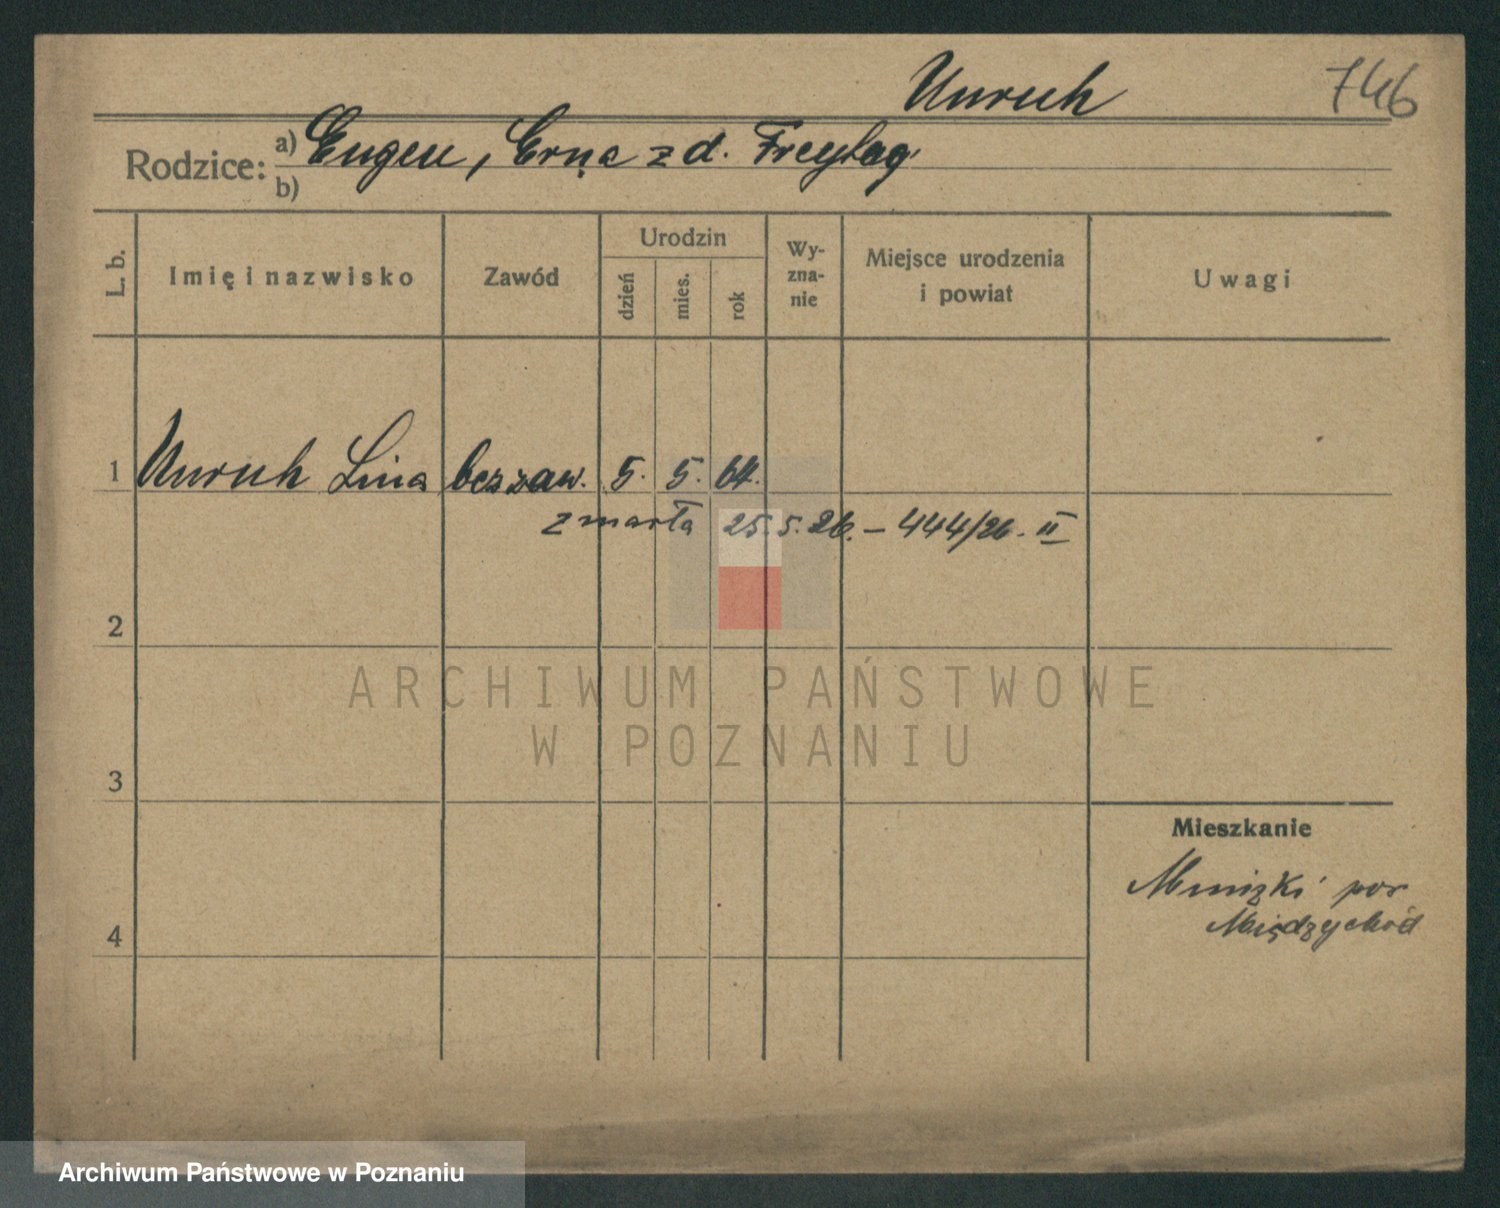 Unruh 746
Rodzice: a) Eugen, Erna z d. Freytag
b)
L. b. Imię i nazwisko Zawód Urodzin dzień mies. rok Wy-zna-nie Miejsce urodzenia i powiat Uwagi
1 Unruh Lina bez zaw. 5. 5. 64.
zmarła 25.5.26. – 444/26. II
2
ARCHIWUM PAŃSTWOWE
W POZNANIU
3
Mieszkanie
Mniszki pow
Międzychód
4
Archiwum Państwowe w Poznaniu